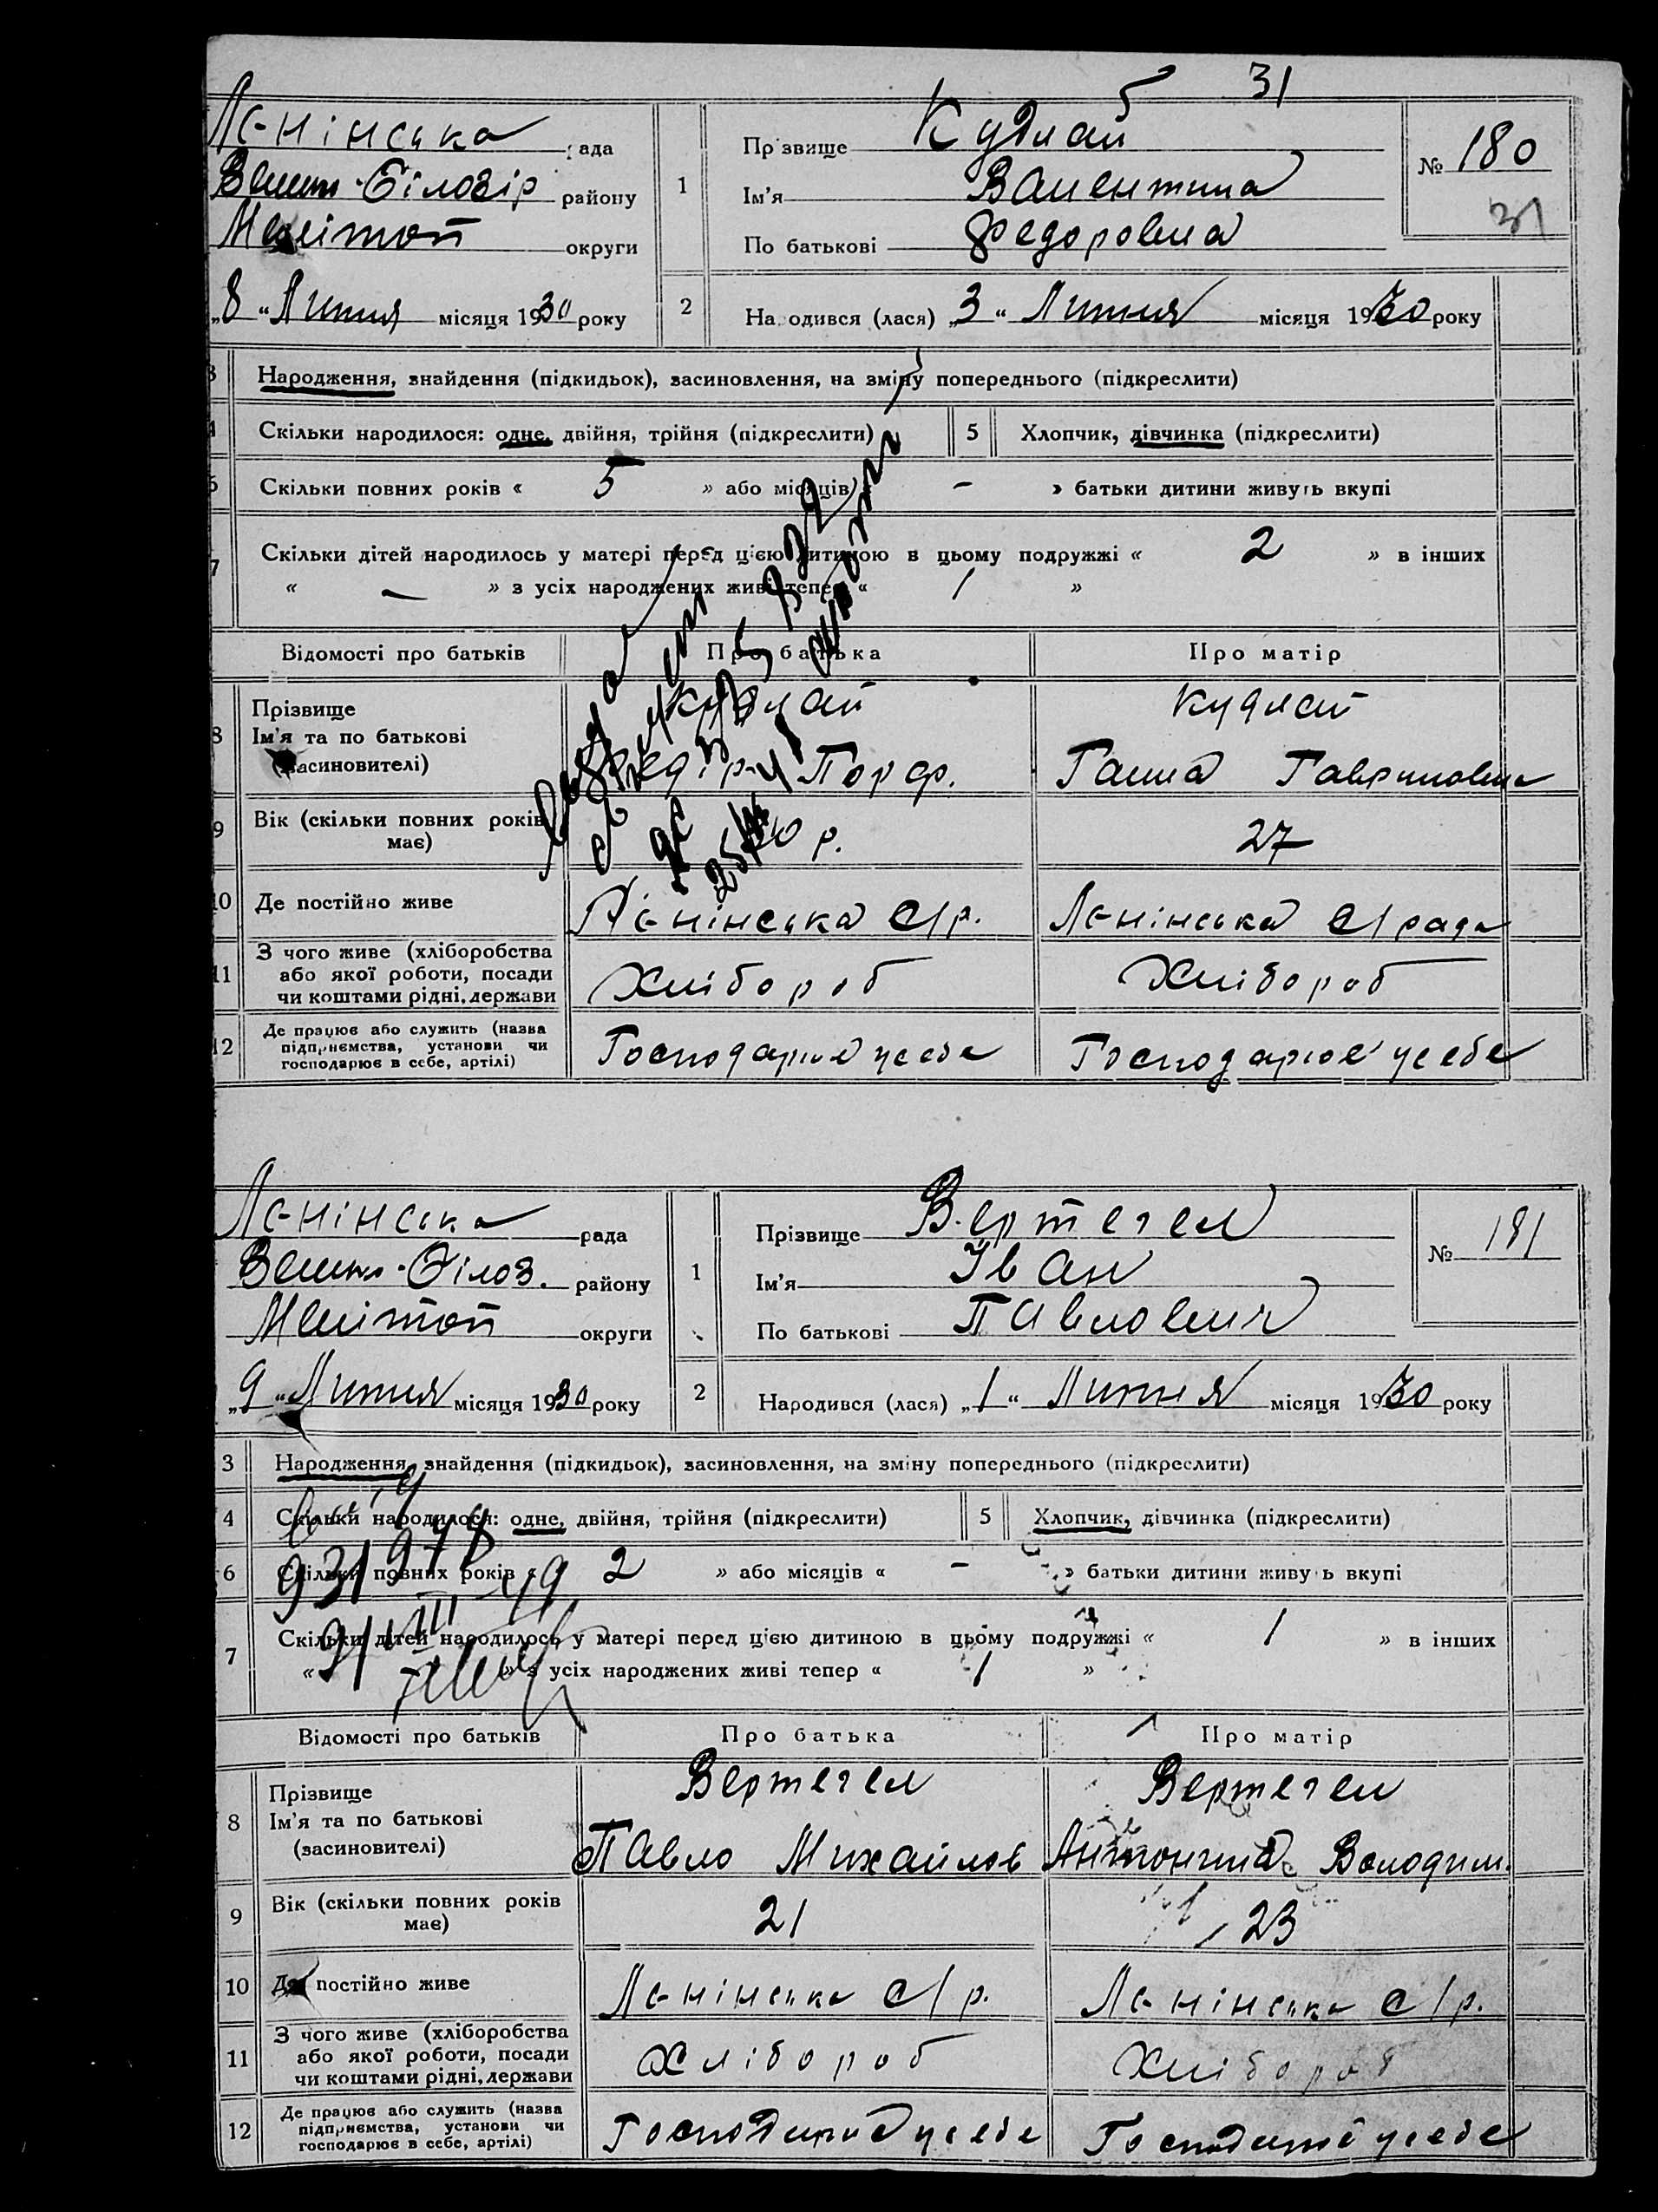 31
Лєнінська рада
Велико-Білозір району
Мелітоп округи
„8“ Липня місяця 1930 року
1
Прізвище Кудлай
Ім'я Валентина
По батькові Федоровна
№ 180
31
2 Народився (лася) „3“ Липня місяця 1930 року
3 Народження, знайдення (підкидьок), засиновлення, на зміну попереднього (підкреслити)
4 Скільки народилося: одне, двійня, трійня (підкреслити) 5 Хлопчик, дівчинка (підкреслити)
6 Скільки повних років « 5 » або місяців « – » батьки дитини живуть вкупі
7 Скільки дітей народилось у матері перед цією дитиною в цьому подружжі « 2 » в інших
« — » з усіх народжених живі тепер « 1 »
Відомості про батьків Про батька Про матір
8 Прізвище
Ім'я та по батькові
(засиновителі)
Кудлай Кудлай
Федір Порф. Ганна Гавриловна
9 Вік (скільки повних років
має)
30 р. 27
10 Де постійно живе Лєнінська С/р. Лєнінська С/рада
11 З чого живе (хліборобства
або якої роботи, посади
чи коштами рідні, держави
Хлібороб Хлібороб
12 Де працює або служить (назва
підприємства, установи чи
господарює в себе, артілі)
Господарює у себе Господарює у себе
Лєнінська рада
Велико-Білоз. району
Мелітоп округи
„9“ Липня місяця 1930 року
1
Прізвище Вертегел
Ім'я Іван
По батькові Павлович
№ 181
2 Народився (лася) „1“ Липня місяця 1930 року
3 Народження, знайдення (підкидьок), засиновлення, на зміну попереднього (підкреслити)
4 Скільки народилося: одне, двійня, трійня (підкреслити) 5 Хлопчик, дівчинка (підкреслити)
6 Скільки повних років « 2 » або місяців « – » батьки дитини живуть вкупі
7 Скільки дітей народилось у матері перед цією дитиною в цьому подружжі « 1 » в інших
« » з усіх народжених живі тепер « 1 »
Відомості про батьків Про батька Про матір
8 Прізвище
Ім'я та по батькові
(засиновителі)
Вертегел Вертегел
Павло Михайлов Антонина Володим.
9 Вік (скільки повних років
має)
21 23
10 Де постійно живе Лєнінська С/р. Лєнінська С/р.
11 З чого живе (хліборобства
або якої роботи, посади
чи коштами рідні, держави
Хлібороб Хлібороб
12 Де працює або служить (назва
підприємства, установи чи
господарює в себе, артілі)
у себе у себе